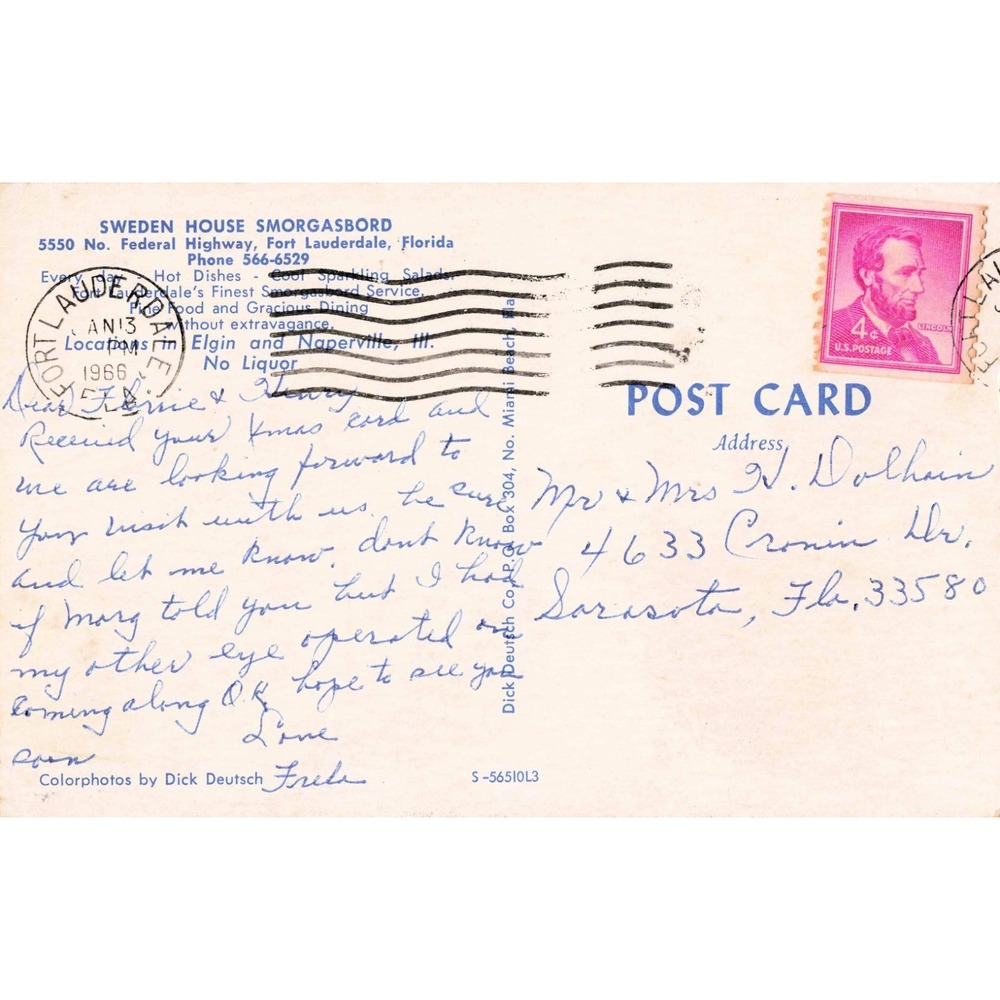 SWEDEN HOUSE SMORGASBORD
5550 No. Federal Highway, Fort Lauderdale, Florida
Phone 566-6529
Every day - Hot Dishes - Cool Sparkling Salads.
Fort Lauderdale's Finest Smorgasbord Service.
Fine Food and Gracious Dining
without extravagance.
Locations in Elgin and Naperville, Ill.
No Liquor
FORT LAUDERDALE, FLA.
JAN 13
PM
1966
Dear & Henry
Received your Xmas card and
we are looking forward to
your visit with us, be sure
and let me know. dont know
if Marg told you but I had
my other eye operated on
coming along O.K. hope to see you
soon
Love
Freda
Colorphotos by Dick Deutsch
S-56510L3
Dick Deutsch Co., P.O. Box 304, No. Miami Beach, Fla.
4¢
LINCOLN
U.S. POSTAGE
POST CARD
Address
Mr & Mrs H. Dolhain
4633 Cronin Dr.
Sarasota, Fla. 33580